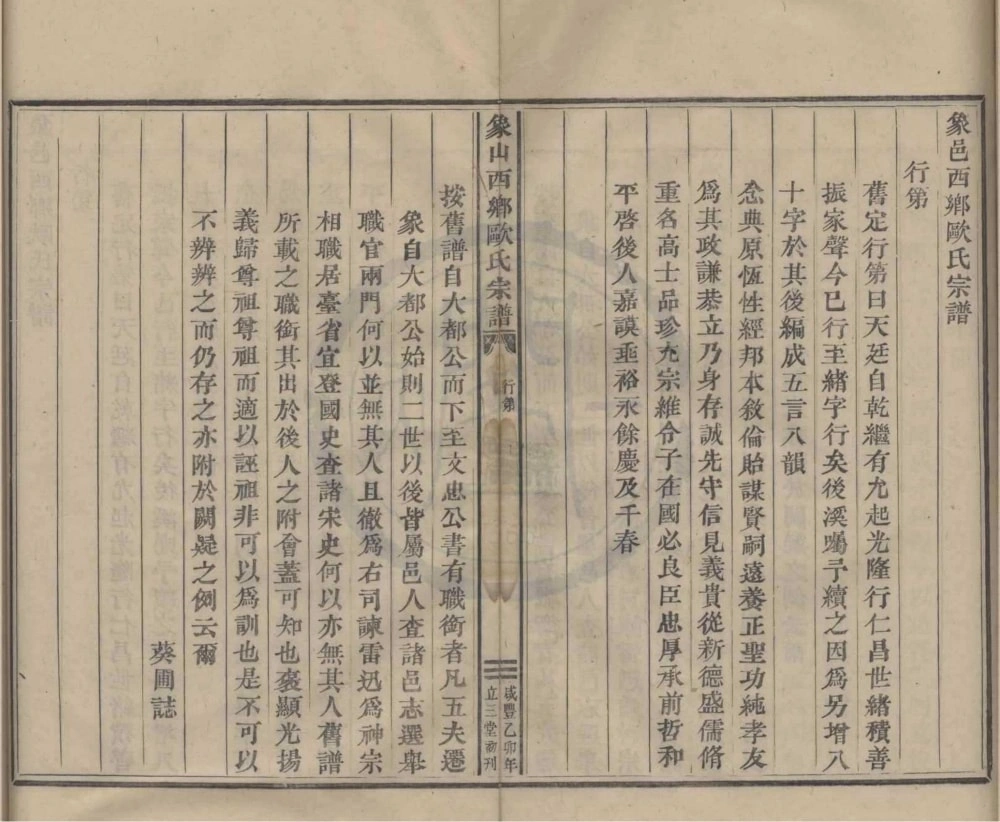 象邑西鄉歐氏宗譜
行第
舊定行第曰天廷自乾繼有允起光隆行仁昌世緒積善
振家聲今已行至緒字行矣後溪囑予續之因爲另增八
十字於其後編成五言八韻
念典原恆性經邦本敘倫貽謀賢嗣遠養正聖功純孝友
爲其政謙恭立乃身存誠先守信見義貴從新德盛儒脩
重名高士品珍允宗維令子在國必良臣忠厚承前哲和
平啓後人嘉謨垂裕永餘慶及千春
象山西鄉歐氏宗譜
行第
咸豐乙卯年
立三堂刊
按舊譜自大都公而下至文忠公書有職銜者凡五夫遷
象自大都公始則二世以後皆屬邑人查諸邑志選舉
職官兩門何以並無其人且徹爲右司諫雷迅爲神宗
相職居臺省宜登國史查諸宋史何以亦無其人舊譜
所載之職銜其出於後人之附會蓋可知也褒顯光揚
義歸尊祖尊祖而適以誣祖非可以爲訓也是不可以
不辨辨之而仍存之亦附於闕疑之例云爾
葵圃誌